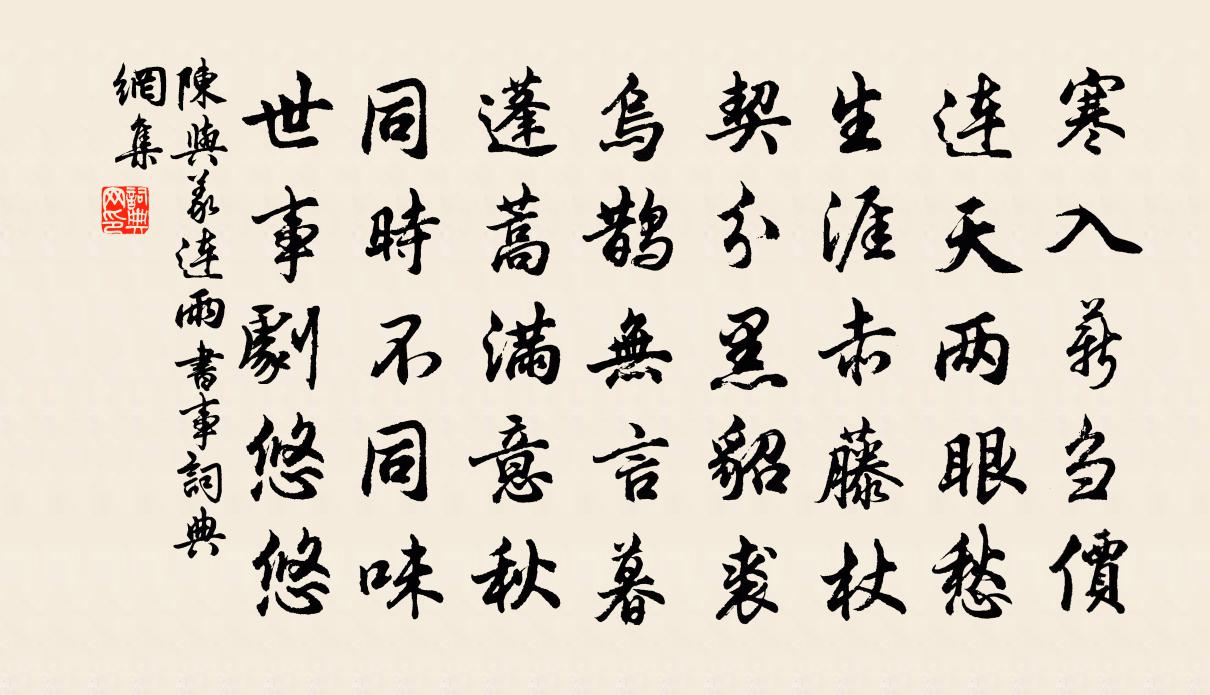 寒入薪刍價
連天兩眼愁
生涯赤藤杖
契分黑貂裘
烏鵲無言暮
蓬蒿滿意秋
同時不同味
世事劇悠悠
陳與義連雨書事詞典
網集
詞典
网印